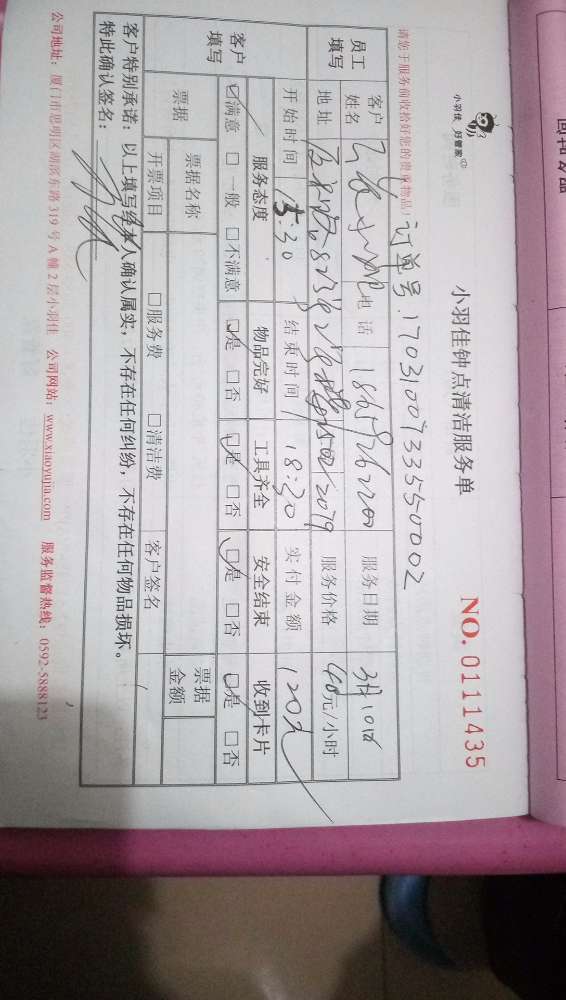 小羽佳 好管家
小羽佳钟点清洁服务单
NO. 0111435
请您于服务前收拾好您的贵重物品!
订单号.1703100733550002
员工填写
客户姓名
电话
服务日期 3月10日
地址
服务价格 40元/小时
开始时间 15:30 结束时间 18:30 实付金额 120元
客户填写
服务态度 物品完好 工具齐全 安全结束 收到卡片
☑满意 □一般 □不满意 ☑是 □否 ☑是 □否 ☑是 □否 ☑是 □否
票据 票据名称 票据金额
开票项目 □服务费 □清洁费 客户签名
客户特别承诺:以上填写经本人确认属实,不存在任何纠纷,不存在任何物品损坏。
特此确认签名:
公司地址:厦门市思明区湖滨东路 319 号 A 幢 2 层小羽佳 公司网站:www.xiaoyujia.com 服务监督热线:0592-5888123